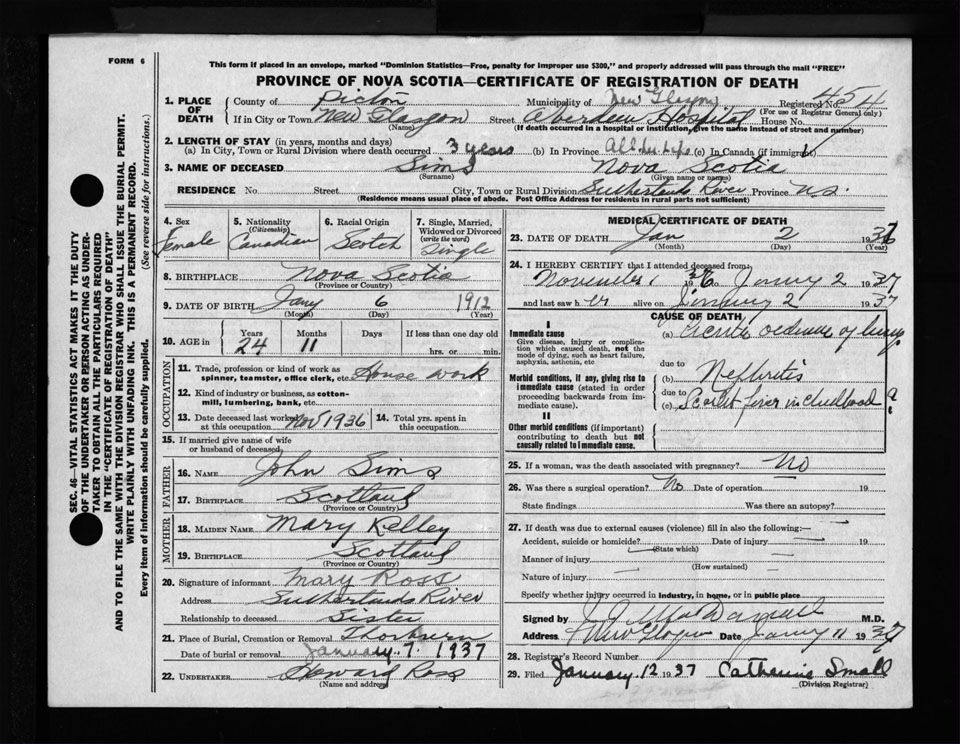 FORM 6
This form if placed in an envelope, marked "Dominion Statistics—Free, penalty for improper use $300," and properly addressed will pass through the mail "FREE"
PROVINCE OF NOVA SCOTIA—CERTIFICATE OF REGISTRATION OF DEATH
SEC. 46- VITAL STATISTICS ACT MAKES IT THE DUTY
OF THE UNDERTAKER OR PERSON ACTING AS UNDER-
TAKER TO OBTAIN ALL THE PARTICULARS REQUIRED
IN THE "CERTIFICATE OF REGISTRATION OF DEATH"
AND TO FILE THE SAME WITH THE DIVISION REGISTRAR WHO SHALL ISSUE THE BURIAL PERMIT.
WRITE PLAINLY WITH UNFADING INK. THIS IS A PERMANENT RECORD.
Every item of information should be carefully supplied. (See reverse side for instructions.)
1. PLACE OF DEATH
County of Pictou Municipality of New Glasgow Registered No. 4511
(For use of Registrar General only)
If in City or Town New Glasgow Street Aberdeen Hospital House No.
(Name) (If death occurred in a hospital or institution, give the name instead of street and number)
2. LENGTH OF STAY (in years, months and days)
(a) In City, Town or Rural Division where death occurred 3 years (b) In Province All her life (c) In Canada (if immigrant)
3. NAME OF DECEASED Sims Nova Scotia
(Surname) (Given name or names)
RESIDENCE No. Street City, Town or Rural Division Sutherlands River Province N.S.
(Residence means usual place of abode. Post Office Address for residents in rural parts not sufficient)
4. Sex Female
5. Nationality (Citizenship) Canadian
6. Racial Origin Scotch
7. Single, Married, Widowed or Divorced (write the word) Single
8. BIRTHPLACE Nova Scotia
(Province or Country)
9. DATE OF BIRTH Jany 6 1912
(Month) (Day) (Year)
10. AGE in Years 24 Months 11 Days If less than one day old hrs. or min.
OCCUPATION
11. Trade, profession or kind of work as spinner, teamster, office clerk, etc. House work
12. Kind of industry or business, as cotton-mill, lumbering, bank, etc.
13. Date deceased last worked at this occupation Nov 1936
14. Total yrs. spent in this occupation
15. If married give name of wife or husband of deceased
FATHER
16. NAME John Sims
17. BIRTHPLACE Scotland
(Province or Country)
MOTHER
18. MAIDEN NAME Mary Kelley
19. BIRTHPLACE Scotland
(Province or Country)
20. Signature of informant Mary Ross
Address Sutherlands River
Relationship to deceased Sister
21. Place of Burial, Cremation or Removal Thorburn
Date of burial or removal January 7. 1937
22. UNDERTAKER Howard Ross
(Name and address)
MEDICAL CERTIFICATE OF DEATH
23. DATE OF DEATH Jan 2 1937
(Month) (Day) (Year)
24. I HEREBY CERTIFY that I attended deceased from:
November 1936 to January 2 1937
and last saw her alive on January 2 1937
CAUSE OF DEATH
I
Immediate cause
Give disease, injury or complication which caused death, not the mode of dying, such as heart failure, asphyxia, asthenia, etc
(a) Acute oedema of lungs
due to
Morbid conditions, if any, giving rise to immediate cause (stated in order proceeding backwards from immediate cause).
(b) Nephritis
due to
(c) Scarlet fever in childhood ?
II
Other morbid conditions (if important) contributing to death but not causally related to immediate cause.
25. If a woman, was the death associated with pregnancy? No
26. Was there a surgical operation? No Date of operation 19
State findings Was there an autopsy?
27. If death was due to external causes (violence) fill in also the following:—
Accident, suicide or homicide? Date of injury 19
(State which)
Manner of injury
(How sustained)
Nature of injury
Specify whether injury occurred in industry, in home, or in public place
Signed by M.D.
Address New Glasgow Date Jany 11 1937
28. Registrar's Record Number
29. Filed January 12 1937 Catherine Small
(Division Registrar)